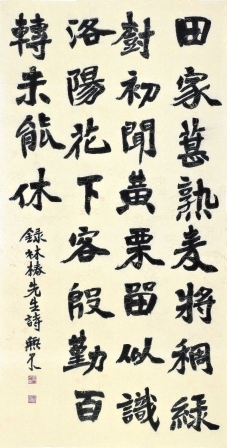 田家葚熟麦將稠綠
樹初聞黃栗留似識
洛陽花下客殷勤百
轉未能休
錄林椿先生詩 無不